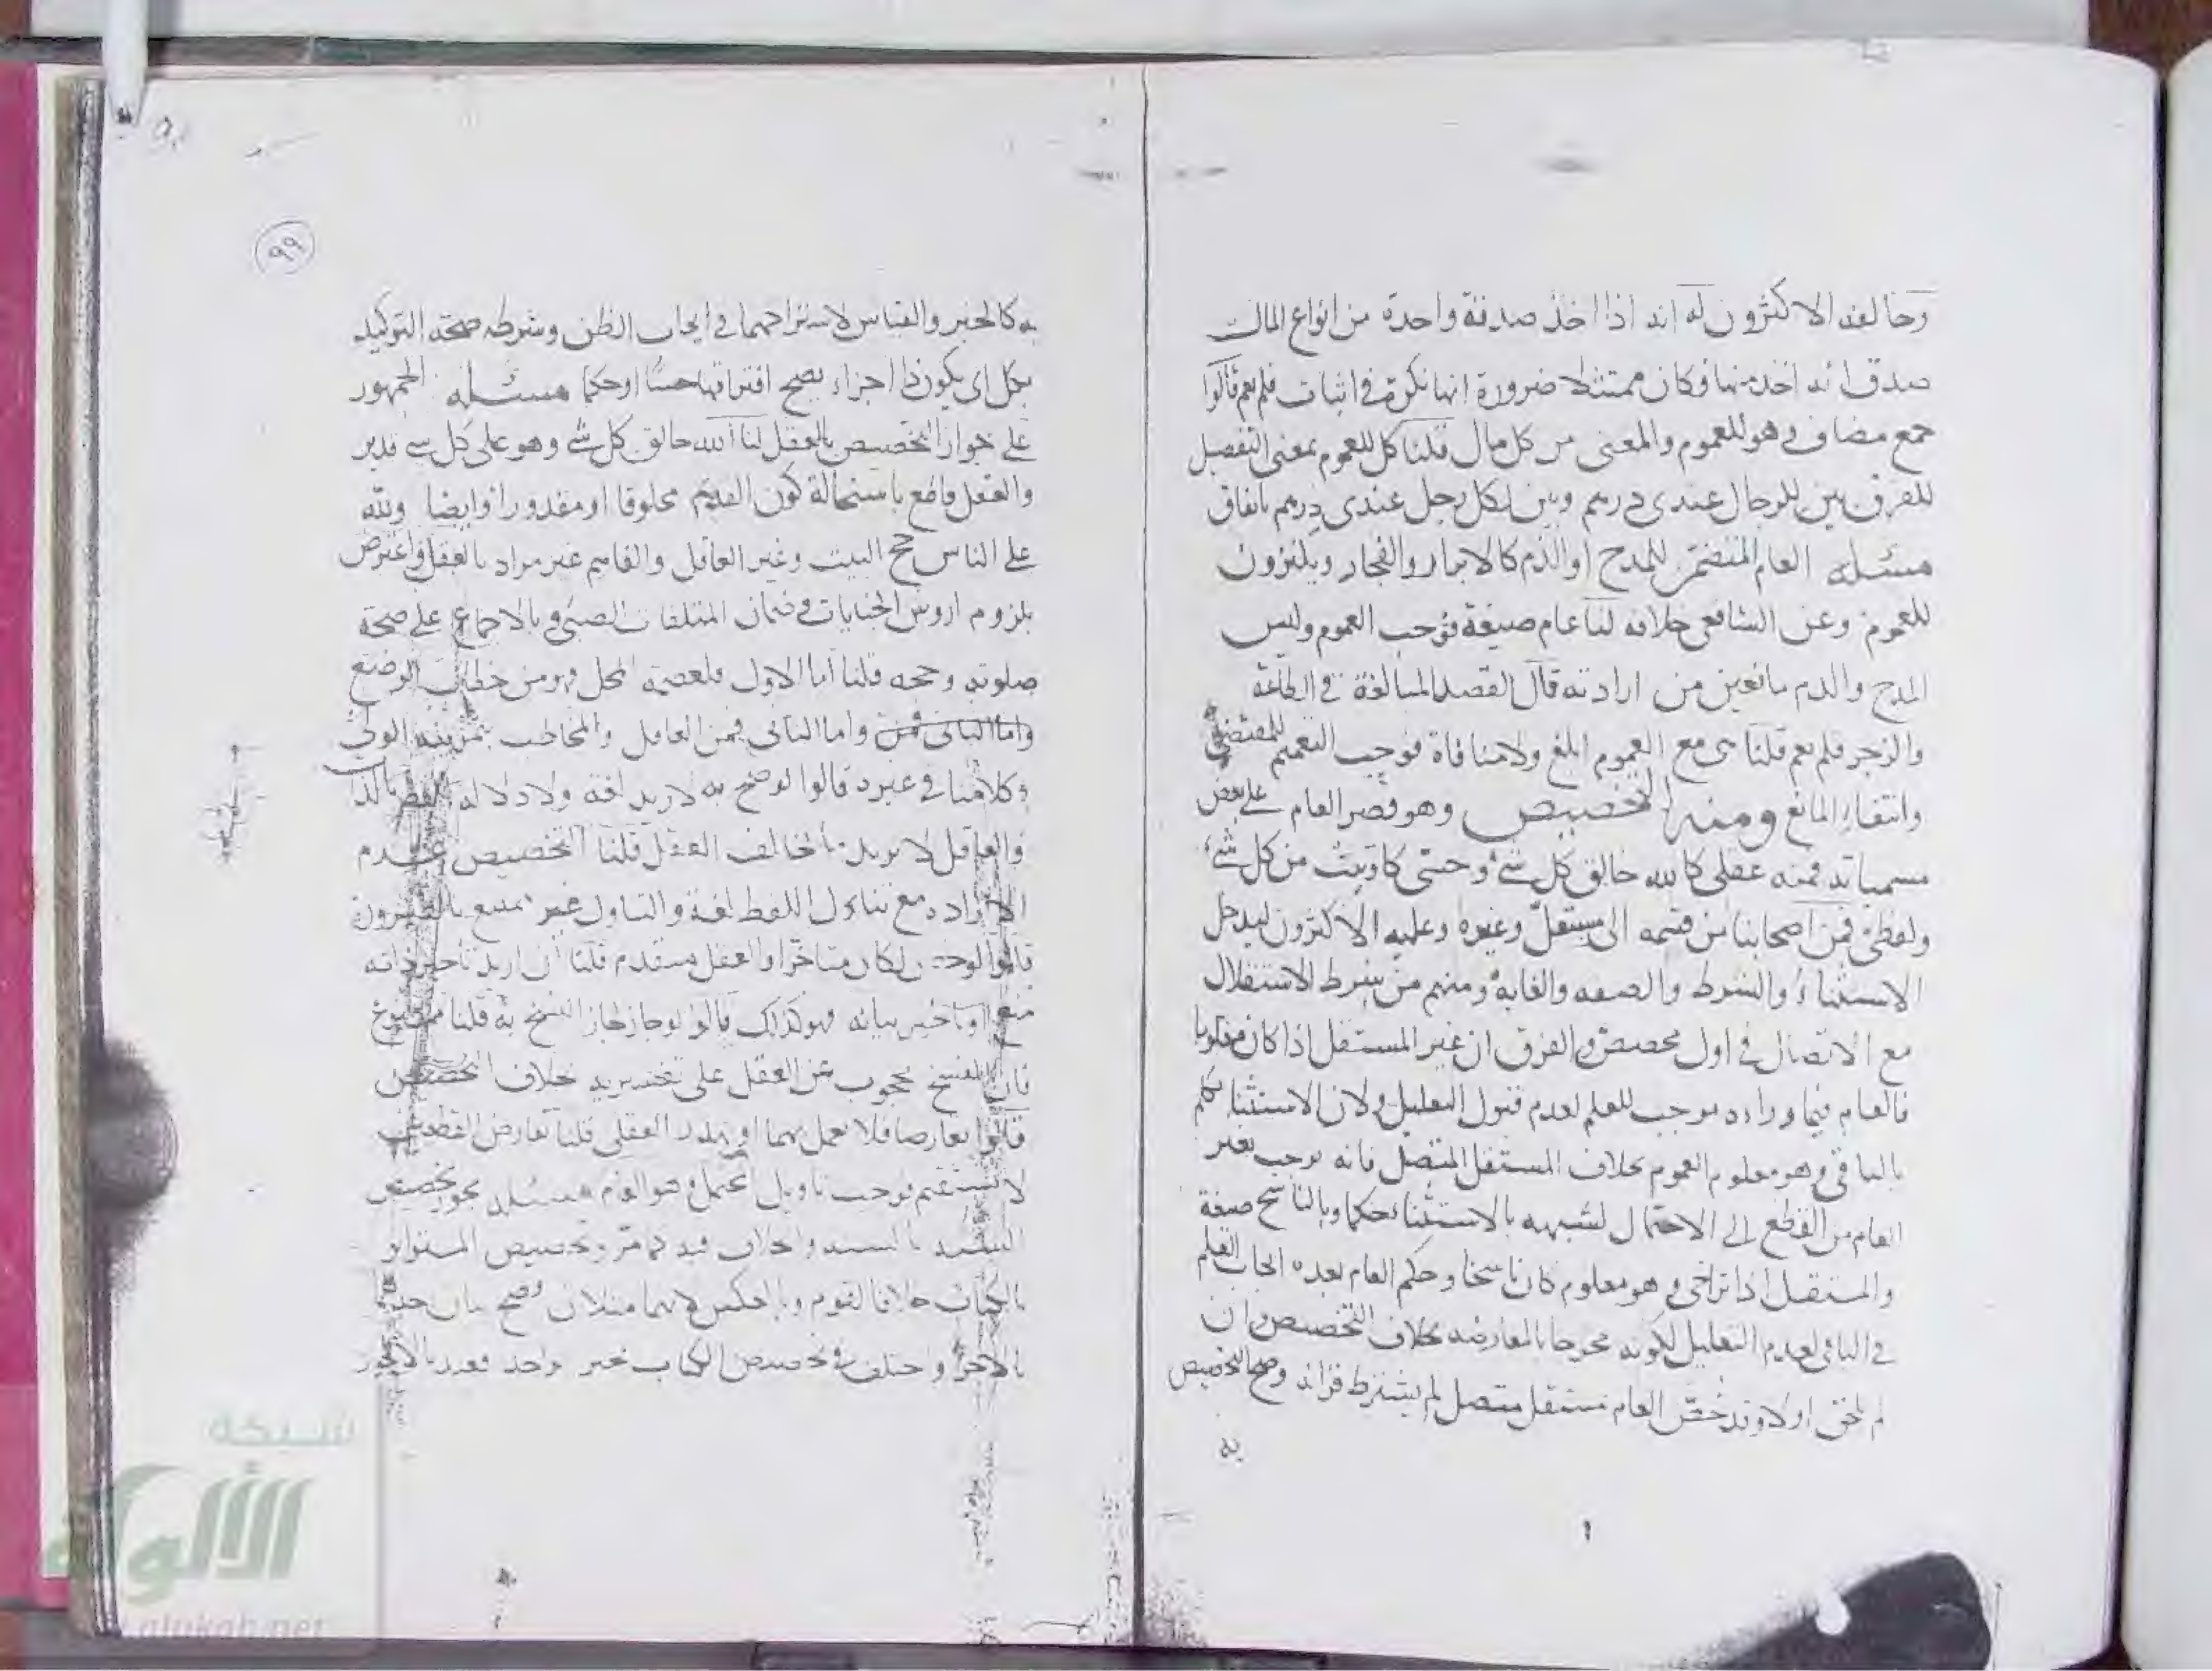 وخالفه الاكثرون له انه اذا اخذ صدقة واحدة من انواع المال
صدق انه اخذ منها فكان ممتثلا ضرورة انها نكرة في اثبات فلم يعم قالوا
جمع مضاف فهو للعموم والمعنى من كل مال قلنا كل للعموم بمعنى التفصيل
للفرق بين للرجال عندي درهم وبين لكل رجل عندي درهم باتفاق
مسئلة العام المتضمن للمدح او الذم كالابرار والفجار ويكنزون
للعموم وعن الشافعي خلافه لنا عام صيغة فوجب العموم وليس
المدح والذم مانعين من ارادته قال القصد المبالغة في الطاعة
والزجر فلم يعم قلنا هي مع العموم ابلغ ولا منافاة فوجب التعميم للمقتضي
وانتفاء المانع ومنه التخصيص وهو قصر العام على بعض
مسمياته فمنه عقلي كالله خالق كل شئ وحسي كاوتيت من كل شئ
ولفظي فمن اصحابنا من قسمه الى مستقل وغيره وعليه الاكثرون ليدخل
الاستثناء والشرط والصفه والغاية ومنهم من شرط الاستقلال
مع الاتصال في اول مخصص والفرق ان غير المستقل اذا كان معلوما
فالعام فيما وراءه موجب للعلم لعدم قبول التعليل ولان الاستثنا تكلم
بالباقي وهو معلوم العموم بخلاف المستقل المتصل فانه يوجب تغير
العام من القطع الى الاحتمال لشبهه بالاستثناء حكما وبالناسخ صيغة
والمستقل اذا تراخى وهو معلوم كان ناسخا وحكم العام بعده ايجاب العلم
في الباقي لعدم التعليل لكونه مخرجا بالمعارضه بخلاف التخصيص وان
لم يلحق اولا وقد خص العام بمستقل متصل لم يشترط قرانه وصح التخصيص
به
٩٩
به كالخبر والقياس لاشتراكهما في ايجاب الظن وشرطه صحة التوكيد
بكل اي يكون ذا اجزاء يصح افتراقها حسا او حكما مسئلة الجمهور
على جواز التخصيص بالعقل لنا الله خالق كل شئ وهو على كل شي قدير
والعقل قاطع باستحالة كون القديم مخلوقا او مقدورا وايضا ولله
على الناس حج البيت وغير العاقل والفاهم غير مراد بالعقل واعترض
بلزوم اروش الجنايات وضمان المتلفات الصبي وبالاجماع على صحة
صلوته وحجه قلنا اما الاول فلعصمة المحل فهو من خطاب الوضع
واما الثاني فمن واما الثاني فمن العاقل والمخاطب بتمرينه الولي
وكلامنا في غيره قالوا لو صح به لاريد لغة ولا دلالة للفظ بالذات
والعاقل لا يريد ما يخالف العقل قلنا التخصيص عدم
الارادة مع تناول اللفظ لغة والتناول غير ممتنع
قالوا لو خص لكان متاخرا والعقل متقدم قلنا ان اريد تاخير ذاته
منع او تاخير بيانه فهو كذلك قالوا لو جاز لجاز النسخ به قلنا ممنوع
فان النسخ محجوب عن العقل على تفسيريه خلاف التخصيص
قالوا تعارضا فلا يعمل بهما او يقدر العقلي قلنا تعارض القطعيين
لا يستقيم فوجب تاويل المحتمل وهو العام مسئلة يجوز تخصيص
السنة بالسنة والخلاف فيه كما مر وتخصيص المتواتر
بالكتاب خلافا لقوم وبالعكس لانهما مثلان فصح بيان احدهما
بالاخر واختلف في تخصيص الكتاب بخبر واحد فعندنا لا يجوز
شبكة
الألوكة
alukah.net